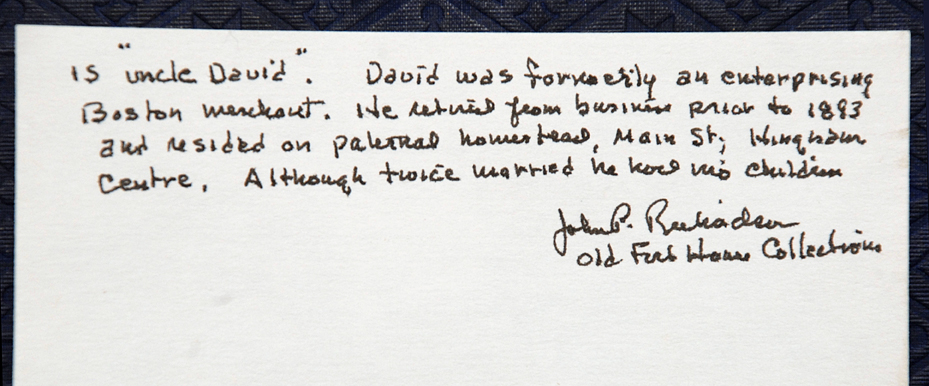 is "uncle David". David was formerily an enterprising
Boston merchant. He retired from business prior to 1893
and resided on paternal homestead, Main St; Hingham
Centre. Although twice married he had no children
John P. Richardson
Old Fort House Collections